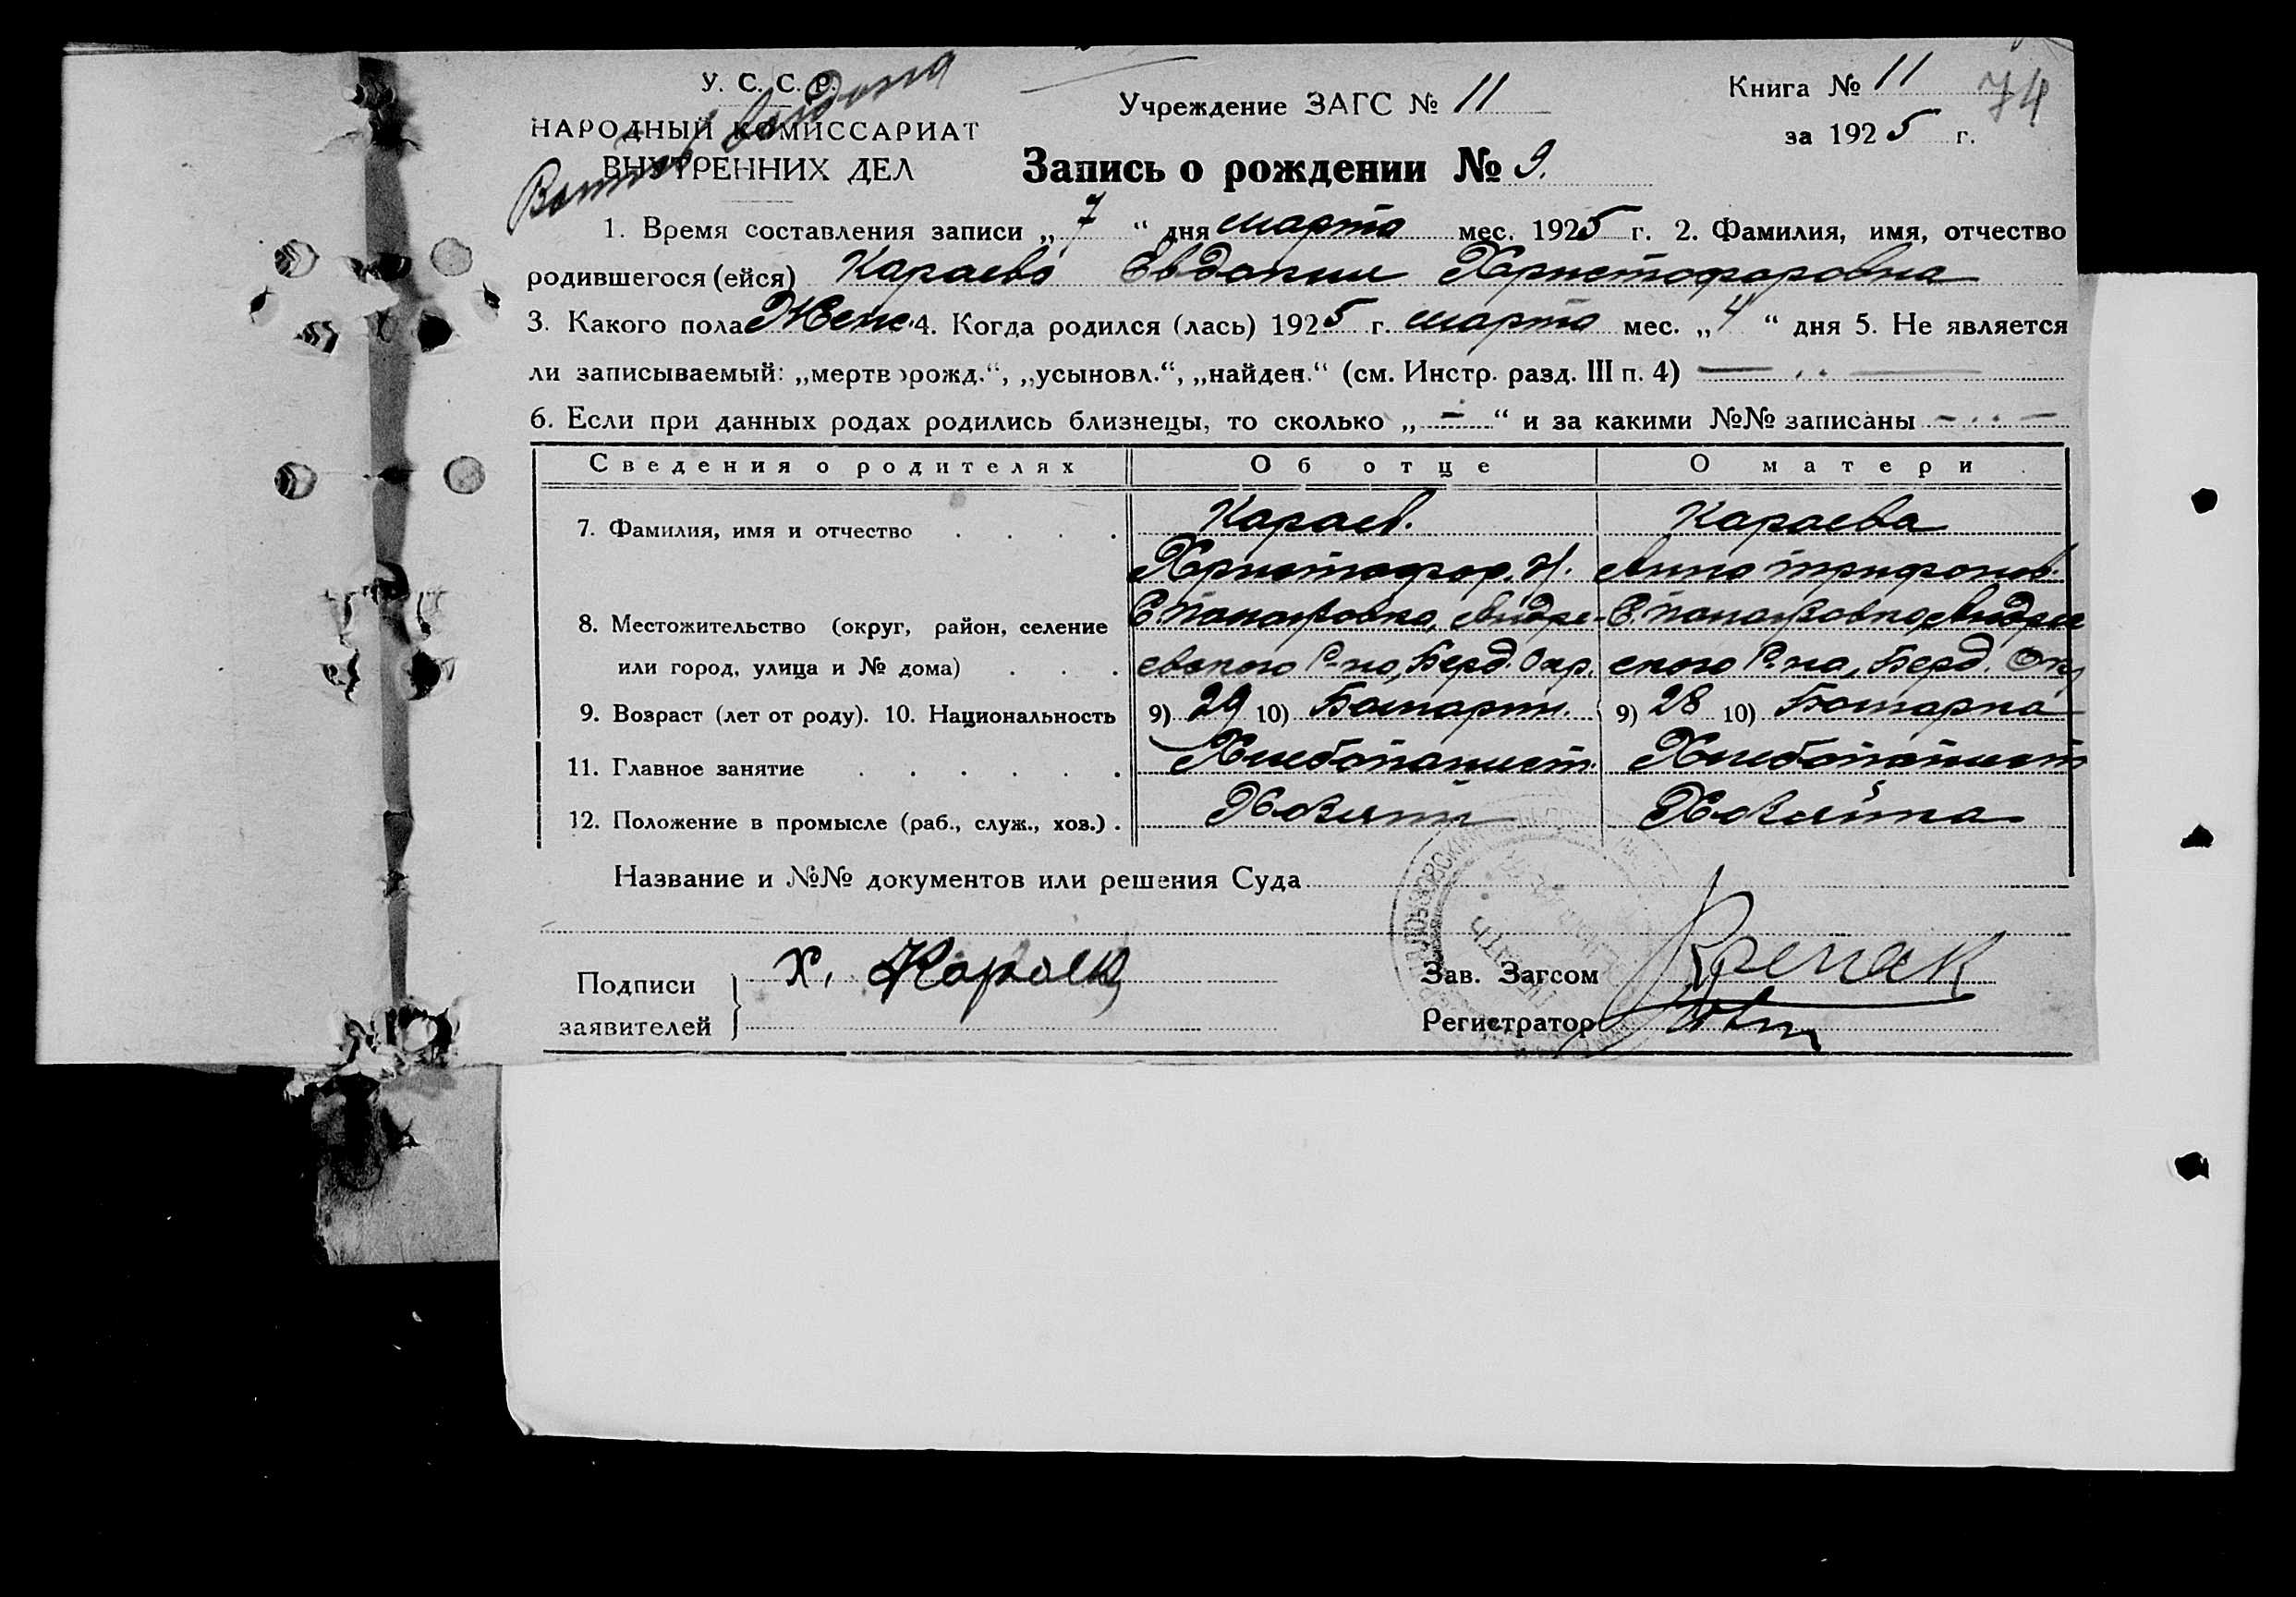 У. С. С. Р.
НАРОДНЫЙ КОМИССАРИАТ
ВНУТРЕННИХ ДЕЛ
Учреждение ЗАГС № 11
Книга № 11 74
за 1925 г.
Запись о рождении № 9.
1. Время составления записи „7“ дня марта мес. 1925 г. 2. Фамилия, имя, отчество
родившегося (ейся) Караева Евдокия Христофоровна
3. Какого пола Женс. 4. Когда родился (лась) 1925 г. марта мес. „4“ дня 5. Не является
ли записываемый: „мертворожд.“, „усыновл.“, „найден.“ (см. Инстр. разд. III п. 4) — .. —
6. Если при данных родах родились близнецы, то сколько „ - “ и за какими №№ записаны - .. -
Сведения о родителях Об отце О матери
7. Фамилия, имя и отчество . . . . Караев. Караева
Христофор. И. Анна Трифонов.
8. Местожительство (округ, район, селение Андре- Андрее
или город, улица и № дома) . . . евского Р-на, Берд. Окр. ского Р-на, Берд. Окр
9. Возраст (лет от роду). 10. Национальность 9) 29 10) Болгарин. 9) 28 10) Болгарка
11. Главное занятие . . . . . . Хлебопашест. Хлебопашест
12. Положение в промысле (раб., служ., хоз.) . Хозяин Хозяйка
Название и №№ документов или решения Суда
Подписи Х. Караев Зав. Загсом
заявителей Регистратор